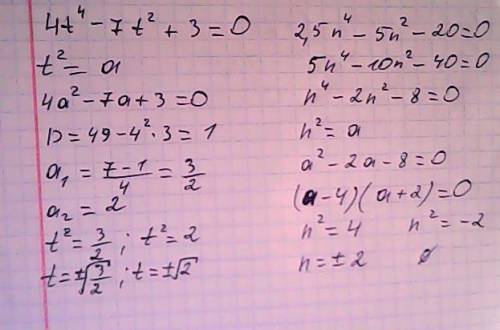 4t⁴ - 7t² + 3 = 0
t² = a
4a² - 7a + 3 = 0
D = 49 - 4² · 3 = 1
a₁ = (7 - 1)/4 = 3/2
a₂ = 2
t² = 3/2 ; t² = 2
t = ±√(3/2) ; t = ±√2
2,5n⁴ - 5n² - 20 = 0
5n⁴ - 10n² - 40 = 0
n⁴ - 2n² - 8 = 0
n² = a
a² - 2a - 8 = 0
(a - 4)(a + 2) = 0
n² = 4 n² = -2
n = ± 2 ∅